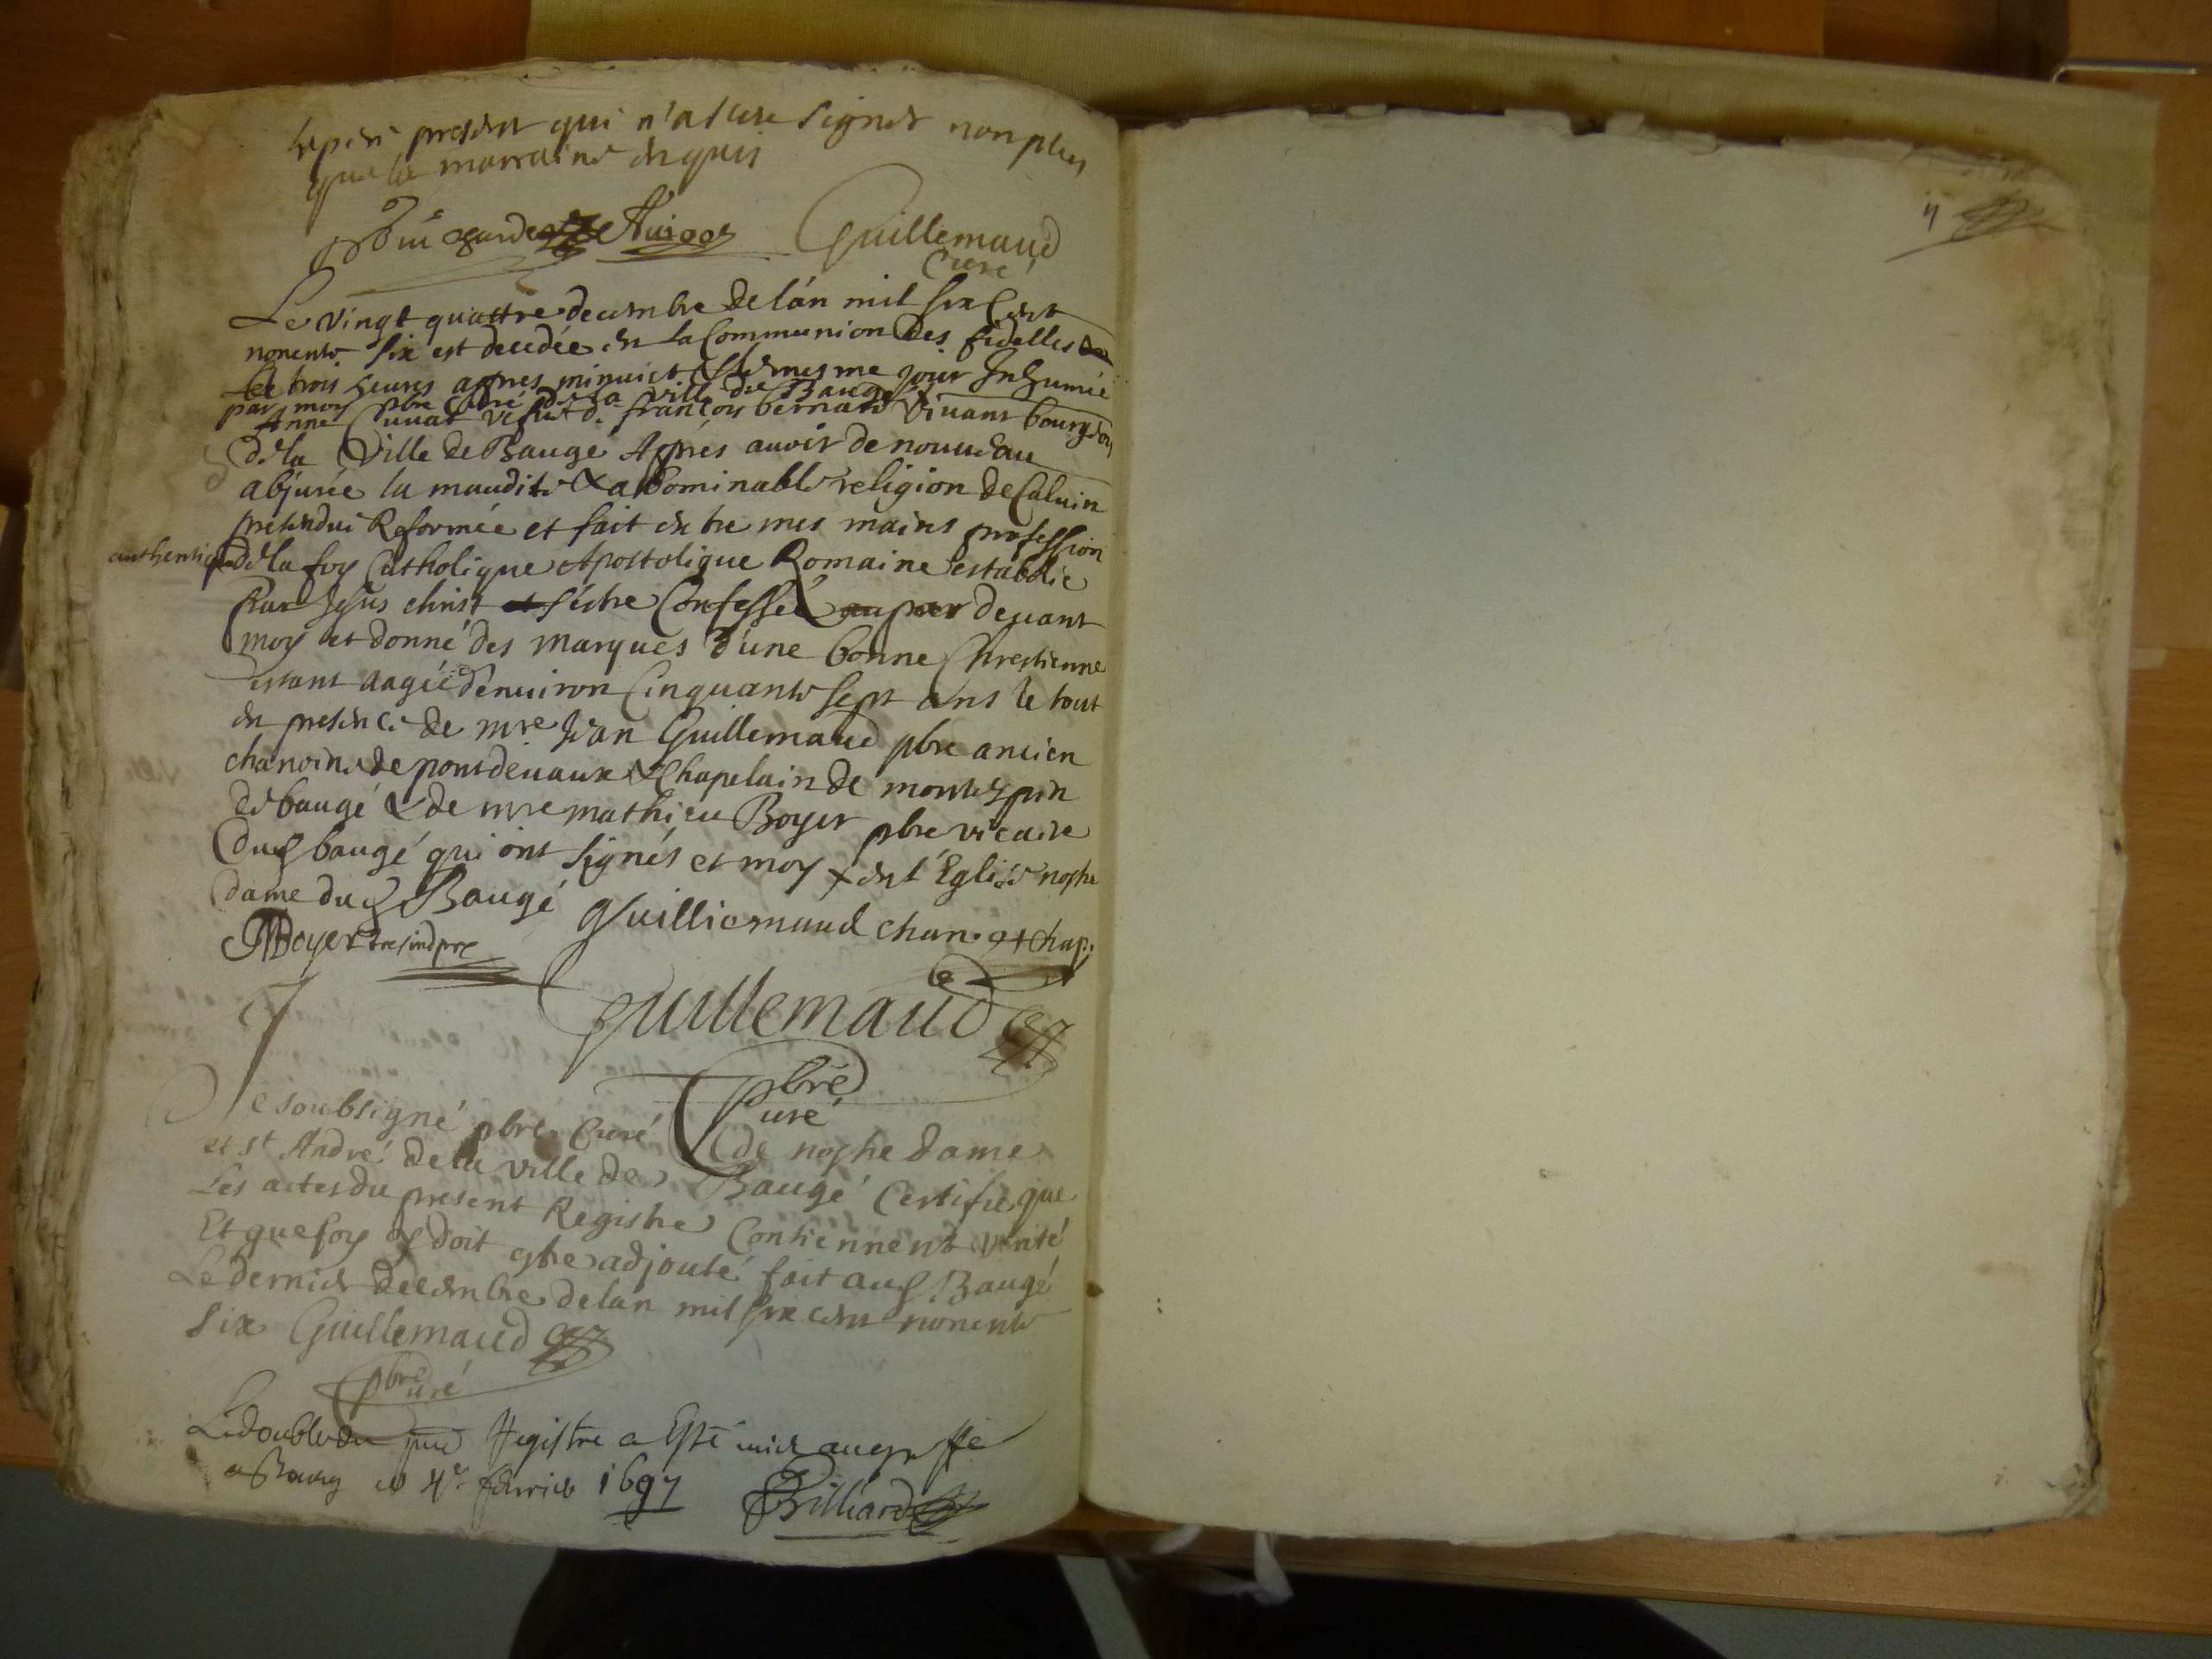 le pere present qui n'a sceu signer non plus
que la marraine enquis
Guillemaud
Curé
Le vingt quattre decembre de lán mil six Cent
nonente six est decedée en la Communion des fidelles
le trois heures appres minuict & le mesme jour Inhumée
par moy pbre Curé de la ville de Baugé
Anne Cuuat vefue de françois bernard viuant bourgeois
de la Ville de Baugé Appres auoir de nouueau
abjurée la maudite & abominable religion de Caluin
pretendue Reformée et fait entre mes mains profession
authentique de la foy Catholique Apostolique Romaine establie
Par Jesus christ et s'éstre Confessée par deuant
moy et donné des marques d'une bonne Chrestienne
estant aagée d'enuiron Cinquante sept ans le tout
en presence de mre Jean Guillemaud pbre ancien
chanoine de pontdeuaux & Chapelain de montespin
de baugé & de mre mathieu Boyer pbre vicaire
dud baugé qui ont signés et moy x en l'Eglise nostre
dame dud Baugé
MBoyer Guilliemaud chan. et chap.
Guillemaud
pbre
Curé
Je soubsigné pbre Curé de nostre dame
et st André de la ville de Baugé Certifie que
Les actes du present Registre Contiennent verité
Et que foy y doit estre adjouté fait aud Baugé
Le dernier decembre de lan mil six cent nonente
six Guillemaud
pbre Curé
Le double du pnt Registre a Esté mis au greffe
a Bourg ce 4e. feburier 1697 Brilliard